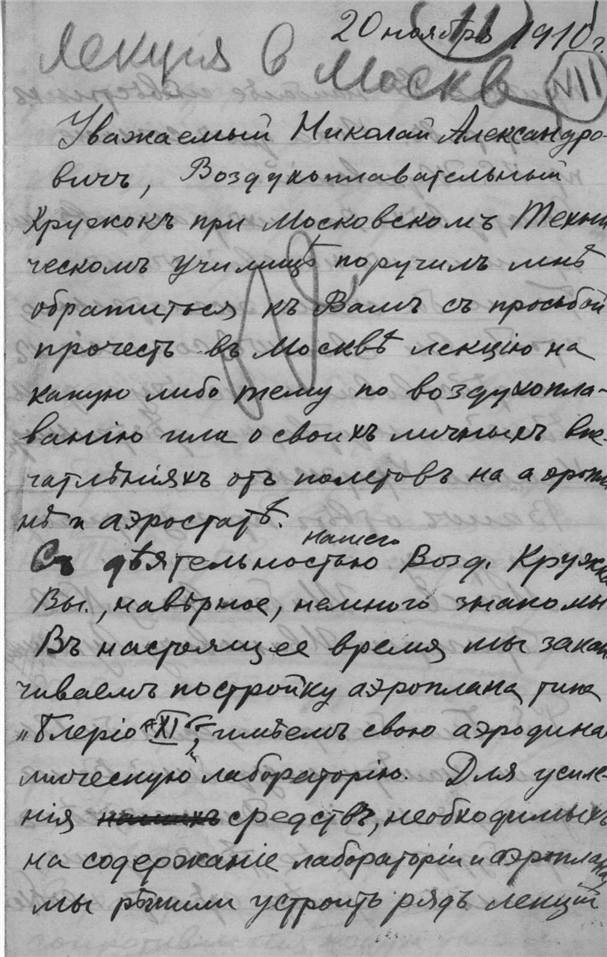 20 ноября 1910 г.
11
Лекция в Москв
VII
Уважаемый Николай Александро-
вичъ, Воздухоплавательный
Кружокъ при Московскомъ Техни
ческомъ Училищѣ поручилъ мнѣ
обратиться къ Вамъ съ просьбой
прочесть въ Москвѣ лекцію на
какую либо тему по воздухопла-
ванію или о своихъ личныхъ впе-
чатлѣніяхъ отъ полетовъ на аэропла
нѣ и аэростатѣ.
нашего
Съ дѣятельностью Возд. Кружка
Вы, навѣрное, немного знакомы
Въ настоящее время мы закан
чиваемъ постройку аэроплана типа
„Блеріо XI", имѣемъ свою аэродина
мическую лабораторію. Для усиле-
нія нашихъ средствъ, необходимыхъ
на содержаніе лабораторіи и аэроплана
мы рѣшили устроить рядъ лекцій